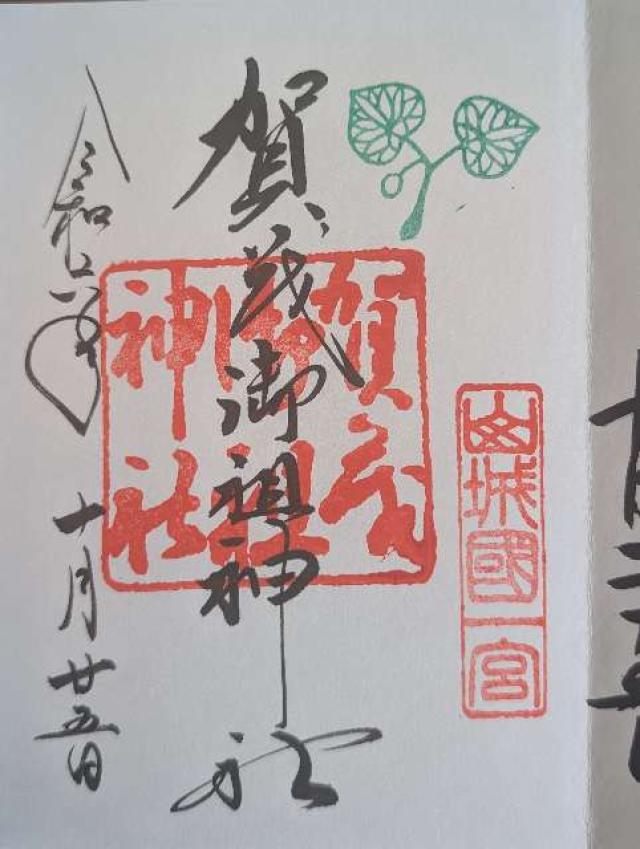 山城國一宮
賀茂御祖神社
賀茂御祖神社
令和六年十月廿五日